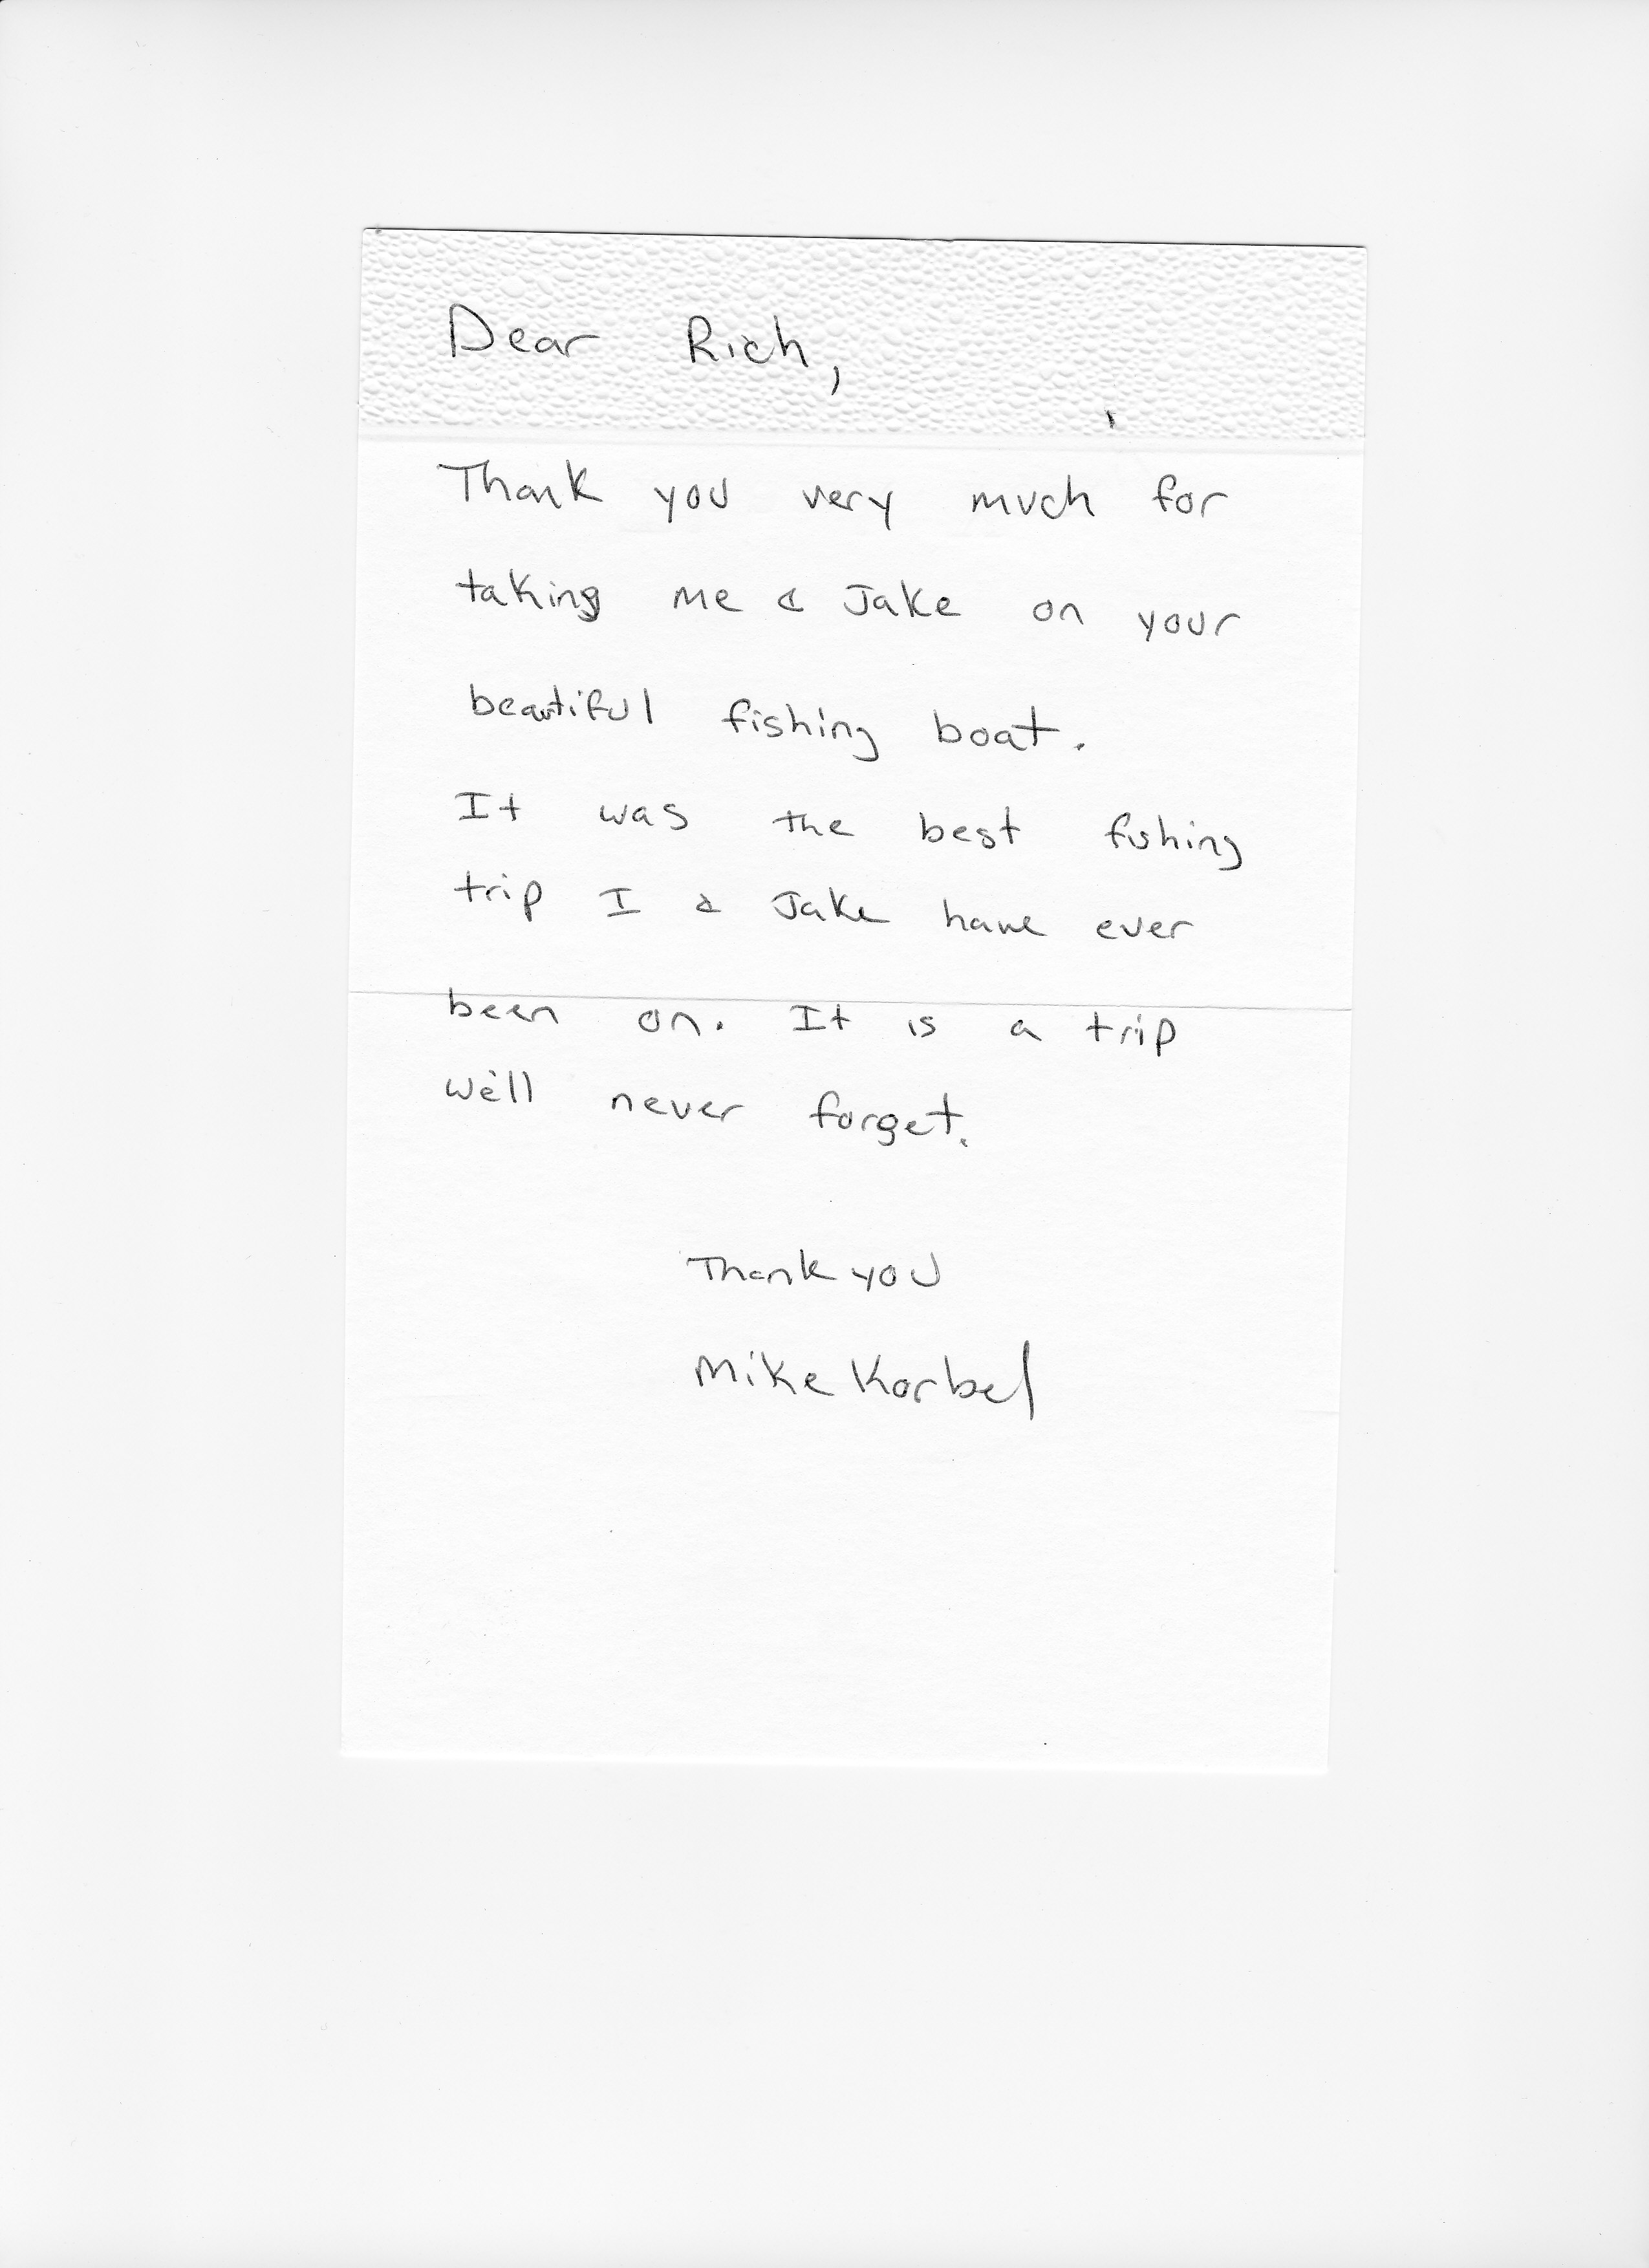 Dear Rich,
Thank you very much for
taking me & Jake on your
beautiful fishing boat.
It was the best fishing
trip I & Jake have ever
been on. It is a trip
we'll never forget.
Thank you
Mike Korbel